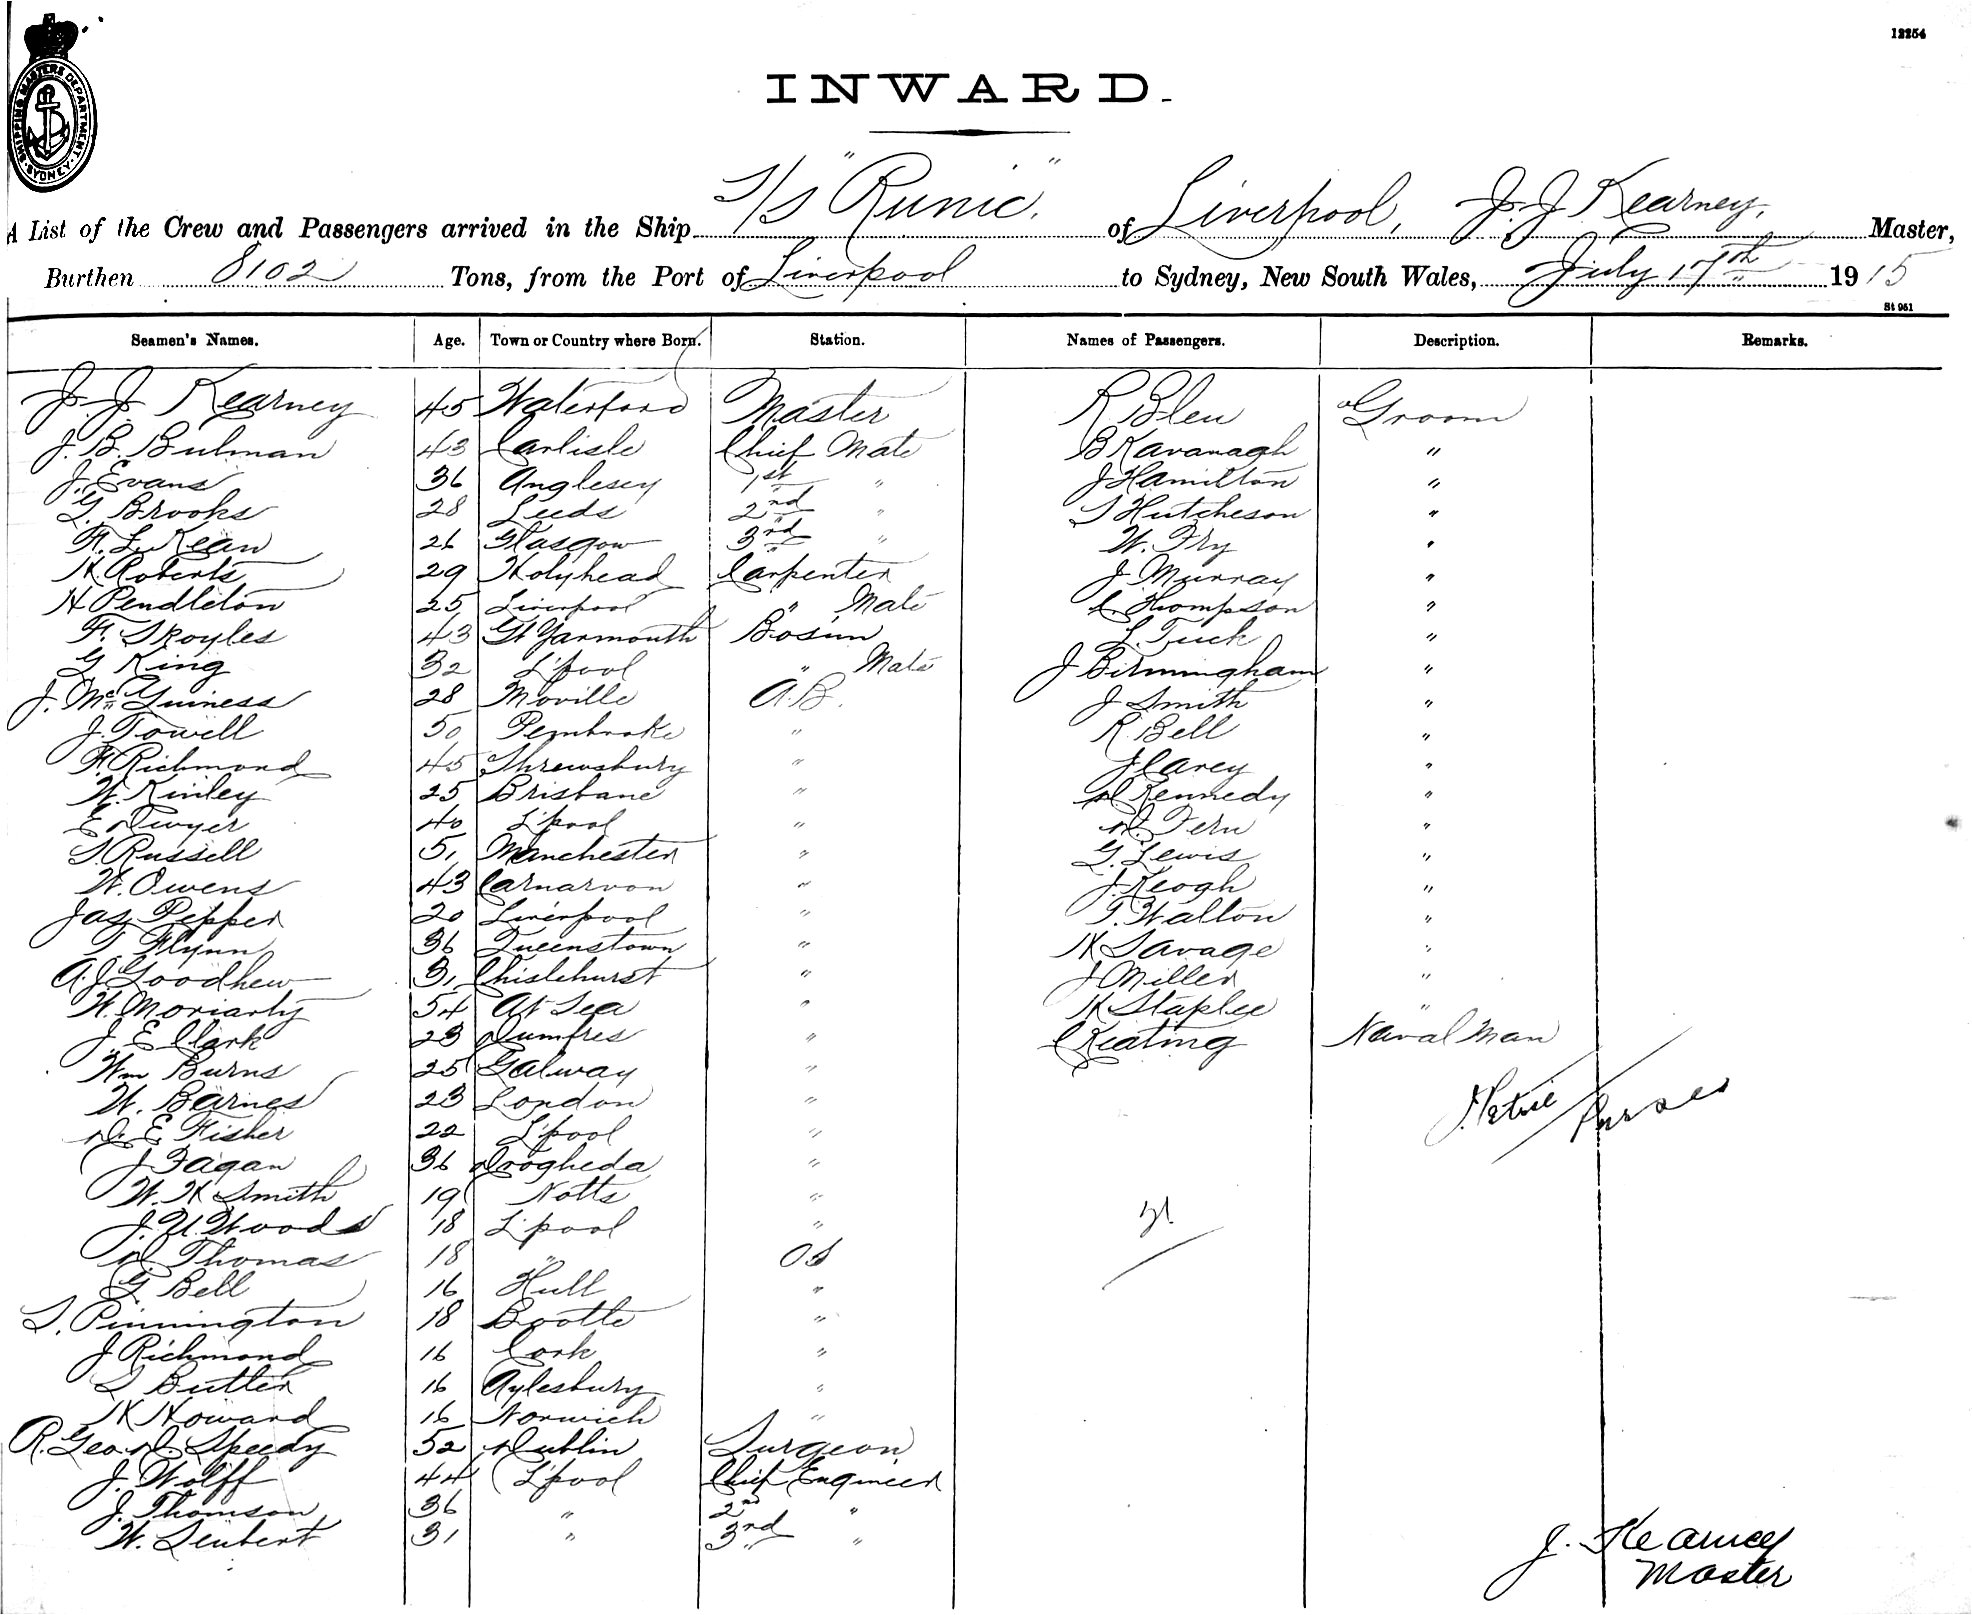 SHIPPING MASTERS DEPARTMENT. SYDNEY.
12254
INWARD.
A List of the Crew and Passengers arrived in the Ship S/S "Runic". of Liverpool, J. J. Kearney, Master,
Burthen 8102 Tons, from the Port of Liverpool to Sydney, New South Wales, July 17th 1915
St 951
Seamen's Names. Age. Town or Country where Born. Station. Names of Passengers. Description. Remarks.
J. J. Kearney 45 Waterford Master R Blew Groom
J. B. Bulman 43 Carlisle Chief Mate B Kavanagh "
J. Evans 36 Anglesey 1st " J Hamilton "
G. Brooks 28 Leeds 2nd " T Hutcheson "
F. L. Kean 26 Glasgow 3rd " W. Fry "
H. Roberts 29 Holyhead Carpenter J Murray "
H Pendleton 25 Liverpool " Mate C. Thompson "
F. Skoyles 43 Gt Yarmouth Bosun L. Tuck "
G King 32 L'pool " Mate J Birmingham "
J. McGuiness 28 Moville A.B. J Smith "
J. Towell 50 Pembroke " R. Bell "
F. Richmond 45 Shrewsbury " J Carey "
W. Kinley 25 Brisbane " D Kennedy "
E Dwyer 40 L'pool " D. Fern "
T Russell 51 Manchester " G. Lewis "
W. Owens 43 Carnarvon " J. Keogh "
Jas Pepper 20 Liverpool " T. Walton "
T Flynn 36 Queenstown " H Savage "
A. J. Goodhew 31 Chislehurst " J Miller "
W. Moriarty 54 At Sea " H Staplee "
J. E Clark 23 Dumfres " C Keating Naval Man
Wm Burns 25 Galway "
W. Barnes 23 London " J. Petrie / Purser
D. E Fisher 22 L'pool "
J Fagan 36 Drogheda "
W. H Smith 19 Notts "
J. U. Woods 18 L'pool " 21
D. Thomas 18 " OS
G. Bell 16 Hull "
S. Pinnington 18 Bootle "
J Richmond 16 Cork "
S Butler 16 Aylesbury "
H Howard 16 Norwich "
R. Geo. D. Speedy 52 Dublin Surgeon
J. Wolff 44 L'pool Chief Engineer
J. Thomson 36 " 2nd "
W. Seubert 31 " 3rd "
J. Kearney
Master